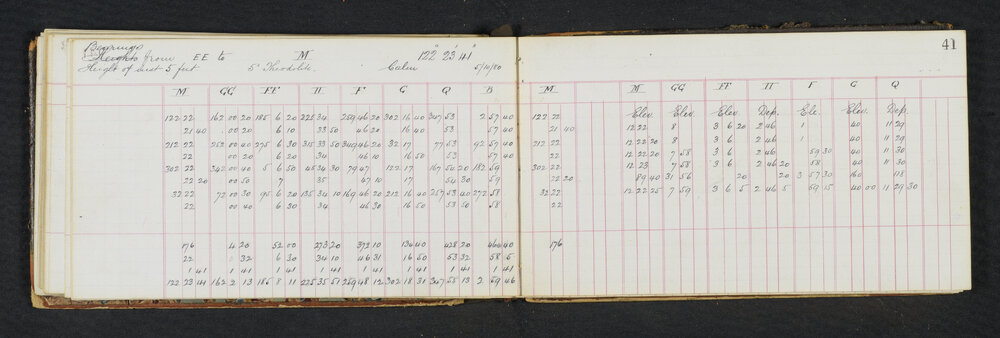 41
Bearings
Heights from EE to M 122° 23' 41"
Height of inst 5 feet 5" Theodolite Calm 5/10/80
M GG EE H F G Q B
122 22 162 00 20 185 6 20 225 34 259 46 20 302 16 40 347 53 2 57 40
21 40 00 20 6 10 33 50 46 20 16 40 53 57 40
212 22 252 00 40 275 6 30 315 33 50 349 46 20 32 17 77 53 92 57 40
22 00 20 6 20 34 46 10 16 50 53 57 40
302 22 342 00 40 5 6 50 45 34 30 79 47 122 17 167 54 20 182 59
22 20 00 50 7 35 47 10 17 54 30 59
32 22 72 00 30 95 6 20 135 34 10 169 46 20 212 16 40 257 53 40 272 58
22 00 40 6 30 34 46 30 16 50 53 50 58
176 4 20 52 00 273 20 372 10 134 40 428 20 464 40
22 0 32 6 30 34 10 46 31 16 50 53 32 58 5
1 41 1 41 1 41 1 41 1 41 1 41 1 41 1 41
122 23 41 162 2 13 185 8 11 225 35 51 259 48 12 302 18 31 347 55 13 2 59 46
M M GG EE H F G Q
122 22 Elev. Elev. Elev. Dep. Ele. Elev. Dep.
21 40 12 22 8 3 6 20 2 46 1 40 11 29
212 22 12 22 20 8 3 6 2 46 1 40 11 29
22 12 22 20 7 58 3 6 2 46 59 30 40 11 30
302 22 12 23 7 58 3 6 2 46 20 58 40 11 30
22 20 89 40 31 56 20 20 3 57 30 160 118
32 22 12 22 25 7 59 3 6 5 2 46 5 59 15 40 00 11 29 30
22
176